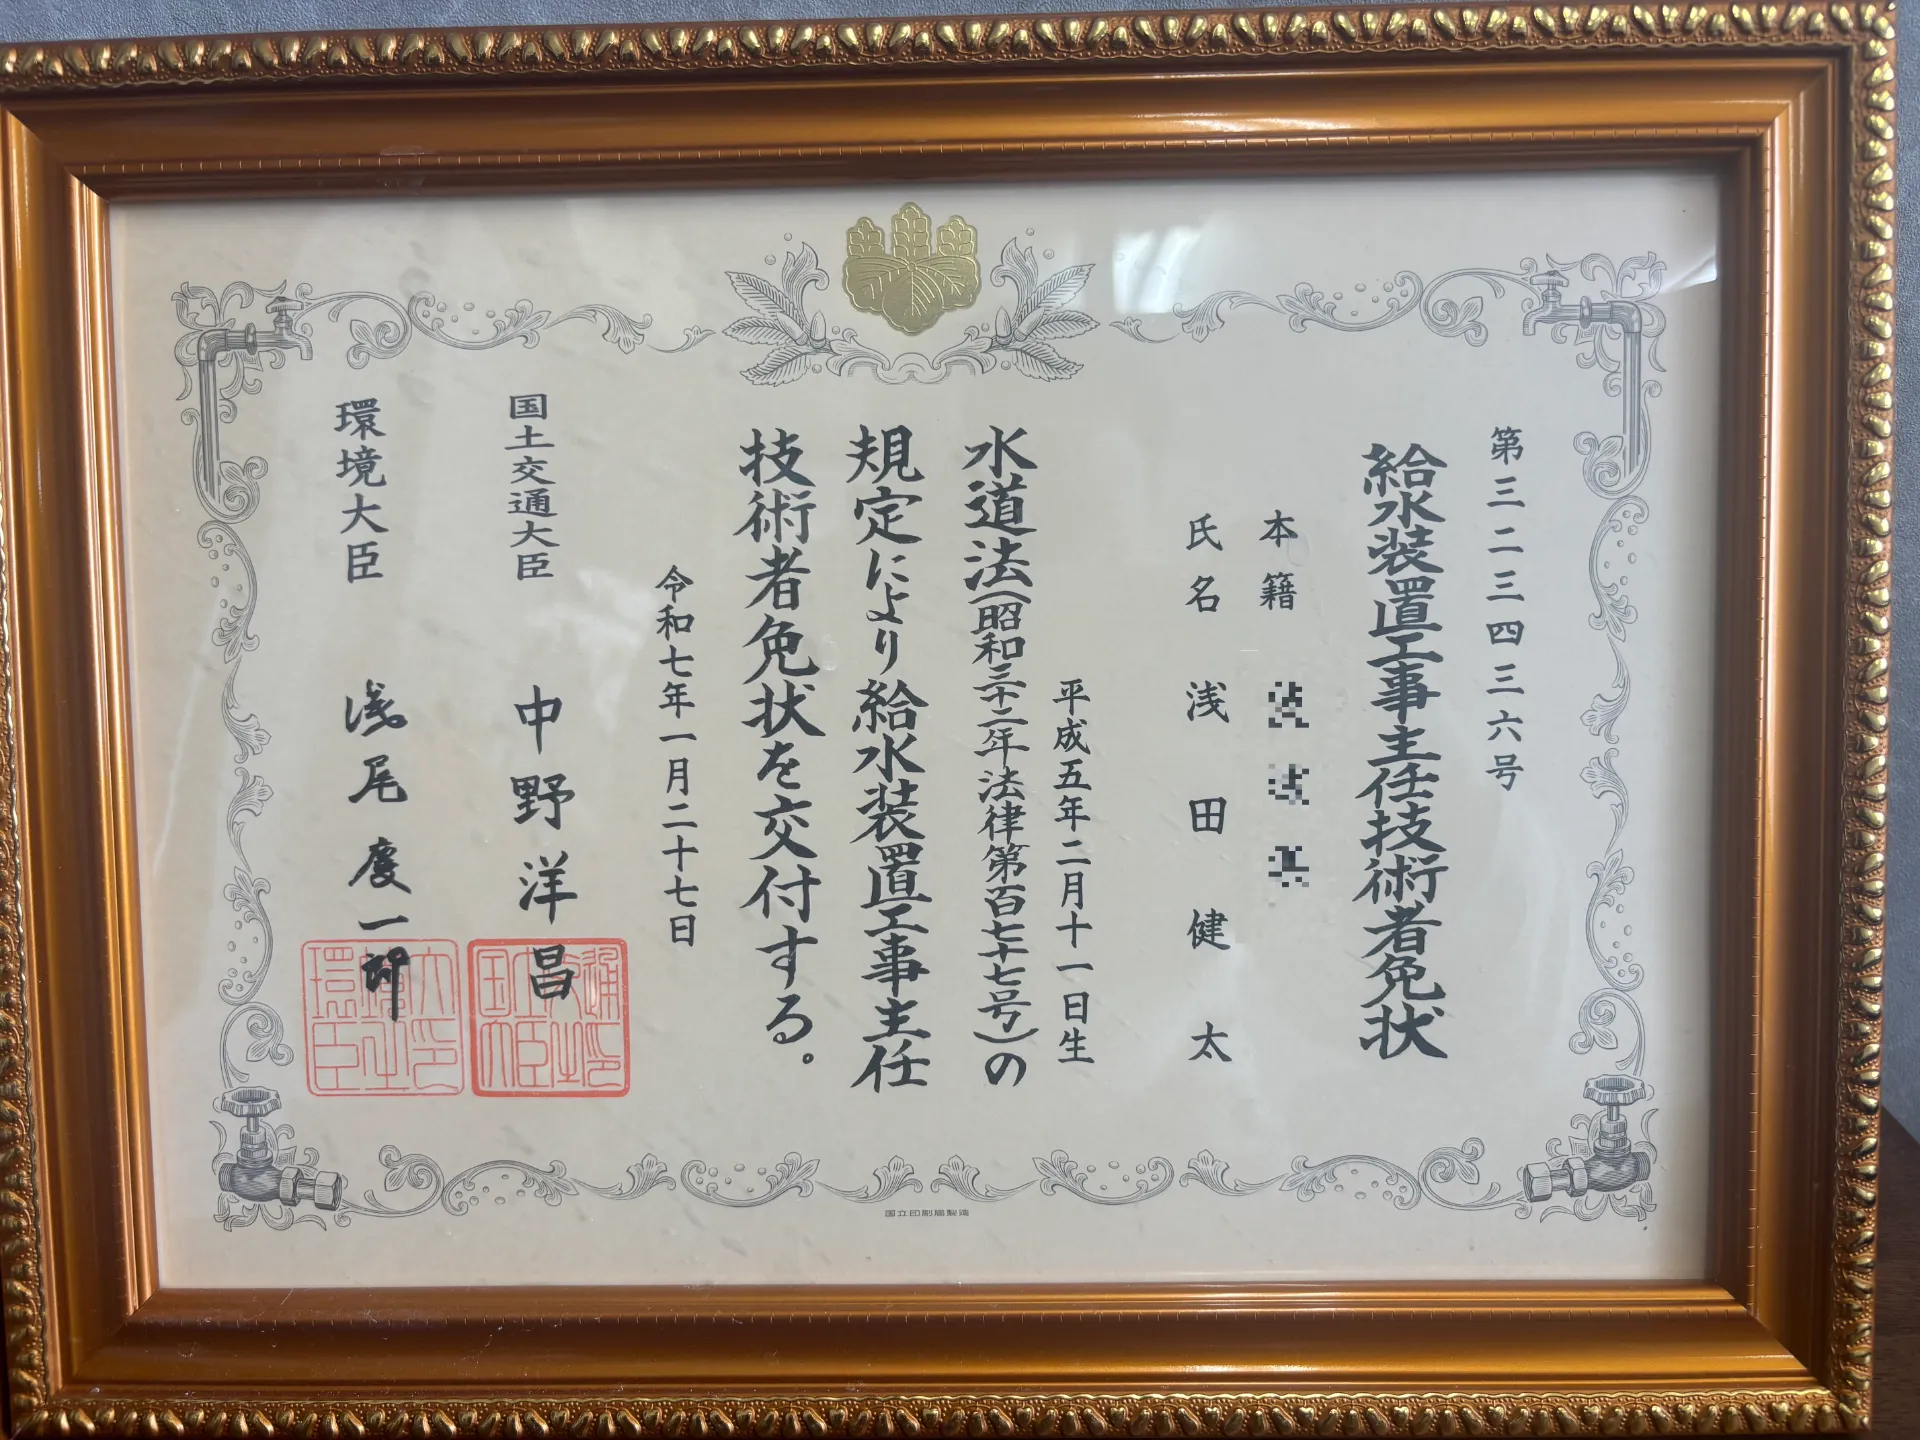 第三二三四三六号
給水装置工事主任技術者免状
本籍
氏名 浅田健太
平成五年二月十一日生
水道法(昭和三十二年法律第百七十七号)の
規定により給水装置工事主任
技術者免状を交付する。
令和七年一月二十七日
国土交通大臣 中野洋昌
環境大臣 浅尾慶一郎
国立印刷局製造